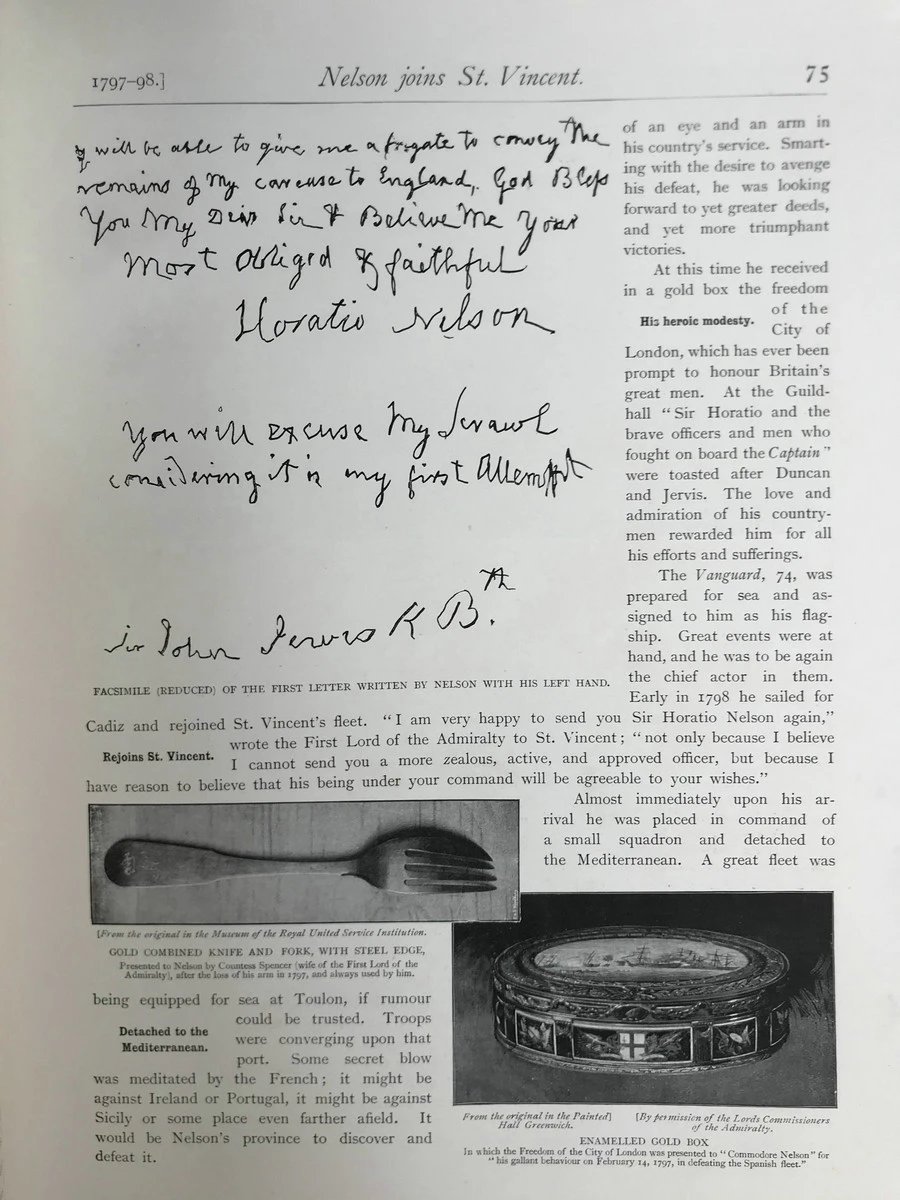 1797–98.]
Nelson joins St. Vincent.
75
will be able to give me a frigate to convey the
remains of my carcuse to England, God Bless
You My Dear Sir & Believe Me Your
Most Obliged & faithful
Horatio Nelson
You will excuse My Scrawl
considering it is my first Attempt
Sir John Jervis K B.th
FACSIMILE (REDUCED) OF THE FIRST LETTER WRITTEN BY NELSON WITH HIS LEFT HAND.
of an eye and an arm in
his country's service. Smart-
ing with the desire to avenge
his defeat, he was looking
forward to yet greater deeds,
and yet more triumphant
victories.
At this time he received
in a gold box the freedom
His heroic modesty.
of the
City of
London, which has ever been
prompt to honour Britain's
great men. At the Guild-
hall “Sir Horatio and the
brave officers and men who
fought on board the Captain”
were toasted after Duncan
and Jervis. The love and
admiration of his country-
men rewarded him for all
his efforts and sufferings.
The Vanguard, 74, was
prepared for sea and as-
signed to him as his flag-
ship. Great events were at
hand, and he was to be again
the chief actor in them.
Early in 1798 he sailed for
Cadiz and rejoined St. Vincent's fleet. “I am very happy to send you Sir Horatio Nelson again,”
Rejoins St. Vincent.
wrote the First Lord of the Admiralty to St. Vincent; “not only because I believe
I cannot send you a more zealous, active, and approved officer, but because I
have reason to believe that his being under your command will be agreeable to your wishes.”
Almost immediately upon his ar-
rival he was placed in command of
a small squadron and detached to
the Mediterranean. A great fleet was
[From the original in the Museum of the Royal United Service Institution.
GOLD COMBINED KNIFE AND FORK, WITH STEEL EDGE,
Presented to Nelson by Countess Spencer [wife of the First Lord of the
Admiralty], after the loss of his arm in 1797, and always used by him.
being equipped for sea at Toulon, if rumour
Detached to the
Mediterranean.
could be trusted. Troops
were converging upon that
port. Some secret blow
was meditated by the French; it might be
against Ireland or Portugal, it might be against
Sicily or some place even farther afield. It
would be Nelson's province to discover and
defeat it.
From the original in the Painted]
Hall Greenwich.
[By permission of the Lords Commissioners
of the Admiralty.
ENAMELLED GOLD BOX
In which the Freedom of the City of London was presented to “Commodore Nelson” for
“his gallant behaviour on February 14, 1797, in defeating the Spanish fleet.”